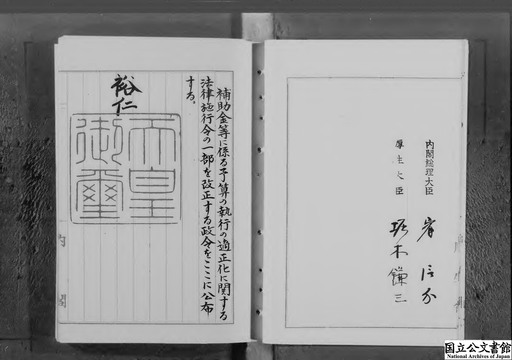 補助金等に係る予算の執行の適正化に関する
法律施行令の一部を改正する政令をここに公布
する。
裕仁
天皇
御璽
内閣総理大臣 岸信介
厚生大臣 堀木鎌三
国立公文書館
National Archives of Japan